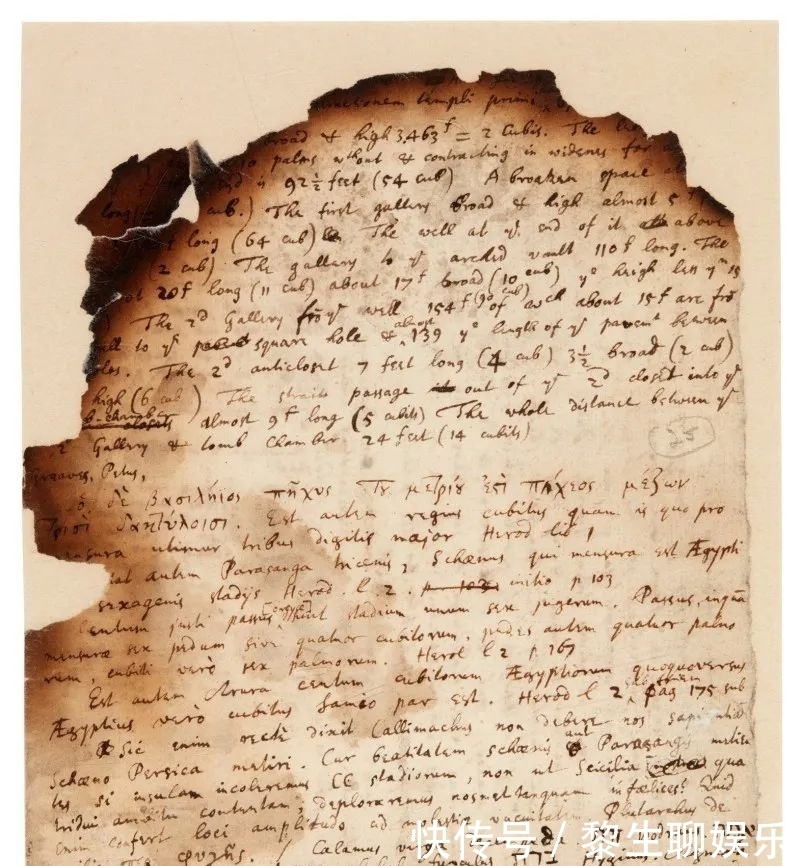 templi primi
broad & high 3,463f = 2 Cubis. The
palms wthout & contracting in widenes for
is 92½ feet (54 cub) A broaken space
long cub.) The first gallery broad & high almost 5f
long (64 cub) The well at ye end of it above
(2 cub) The gallery to ye arched vault 110f long. The
20f long (11 cub) about 17f broad (10 cub) ye heigh less yn 15
The 2d Gallery frō ye well 154f (90 cub) of wch about 15f are frō
to ye square hole & almost 139 ye length of ye pavemt between
The 2d anticloset 7 feet long (4 cub) 3½ broad (2 cub)
high (6 cub) The straite passage out of ye 2d closet into ye
almost 9f long (5 cubits) The whole distance between ye
2 Gallery & tomb Chamber 24 feet (14 cubits)
25
Greaves, Petus,
ὁ δὲ βασιλήϊος πῆχυς τοῦ μετρίου ἐστὶ πήχεος μέζων
τρισὶ δακτύλοισι. Est autem regius cubitus quam is quo pro
mensura utimur tribus digitis major Herod lib 1
autem Parasanga tricenis, Schœnus qui mensura est Ægypti
sexagenis stadijs Herod. l. 2. initio p 103
Centum justi passus stadium unum sex jugerum. Passus, inquā
mensuræ sex pedum sive quatuor cubitorum, pedes autem quatuor palmo
rum, cubiti verò sex palmorum. Herod l 2 p 167
Est autem Arura centum cubitorum Ægyptiorum quoquoversus
Ægyptius verò cubitus Samio par est. Herod l 2, pag 175 sub
Sic enim rectè dixit Callimachus non debere nos sapientiā
Schœno Persica metiri. Cur beatitatem schœnis aut Parasangis
si insulam incoleremus CC stadiorum, non ut Scicilia qua
tridui ambitu contentam; deploraremus nosmet tanquam infœlices? Quid
enim confert loci amplitudo ad molestiæ vacuitatem Plutarchus de
φυγῆς. / Calamus
快传号 / 黎生聊娱乐